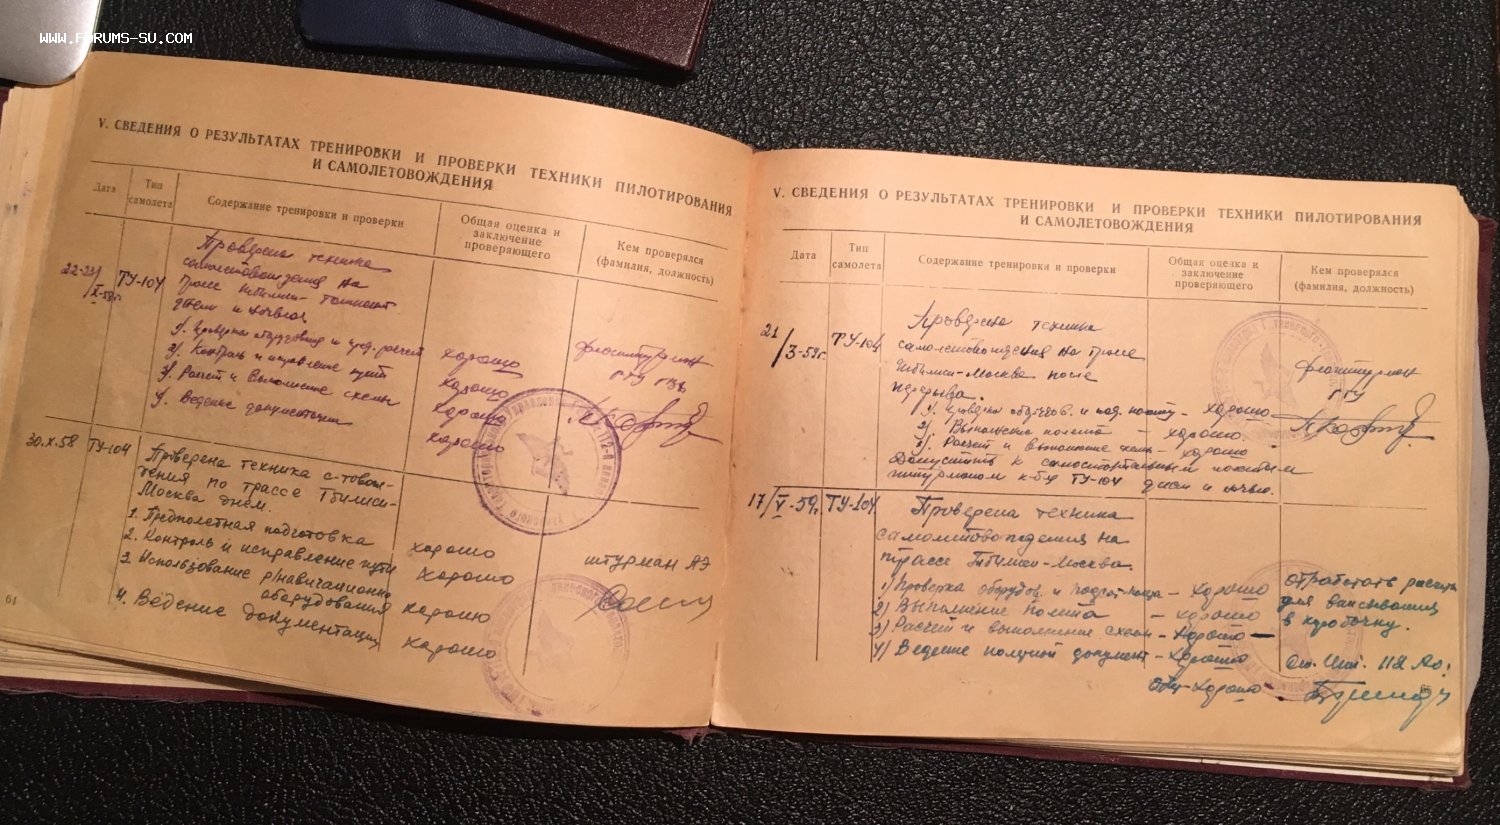 WWW.FORUMS-SU.COM
V. СВЕДЕНИЯ О РЕЗУЛЬТАТАХ ТРЕНИРОВКИ И ПРОВЕРКИ ТЕХНИКИ ПИЛОТИРОВАНИЯ
И САМОЛЕТОВОЖДЕНИЯ
Дата
Тип самолета
Содержание тренировки и проверки
Общая оценка и заключение проверяющего
Кем проверялся (фамилия, должность)
22-23/X-58г.
ТУ-104
Проверена техника
самолетовождения на
трассе Тбилиси-Ташкент
днем и ночью
1. Проверка оборудования и
2. Контроль и исправление пути хорошо
3. Расчет и выполнение схемы хорошо
4. Ведение документации хорошо
хорошо
флагштурман
ГТУ ГВФ
30.X.58
ТУ-104
Проверена техника с-товож-
дения по трассе Тбилиси-
Москва днем.
1. Предполетная подготовка хорошо
2. Контроль и исправление пути хорошо
3. Использование р/навигационно
оборудования хорошо
4. Ведение документации хорошо
штурман АЭ
64
V. СВЕДЕНИЯ О РЕЗУЛЬТАТАХ ТРЕНИРОВКИ И ПРОВЕРКИ ТЕХНИКИ ПИЛОТИРОВАНИЯ
И САМОЛЕТОВОЖДЕНИЯ
Дата
Тип самолета
Содержание тренировки и проверки
Общая оценка и заключение проверяющего
Кем проверялся (фамилия, должность)
21/3-59г.
ТУ-104
Проверена техника
самолетовождения на трассе
Тбилиси-Москва после
перерыва.
1) Проверка оборудов. и под. - хорошо
2) Выполнение полета - хорошо.
3) Расчет и выполнение схемы - хорошо
Допустить к самостоятельным полетам
штурманом к-бля ТУ-104 днем и ночью.
флагштурман
ГТУ
17/V-59г.
ТУ-104
Проверена техника
самолетовождения на
трассе Тбилиси-Москва.
1) Проверка оборудов. и - хорошо
2) Выполнение полета - хорошо
3) Расчет и выполнение схем - хорошо
4) Ведение полетной документ - хорошо
Общ-хорошо
отработать расчет
для вписывания
в коробочку.
Ст. Шт. 112 Ао.
65